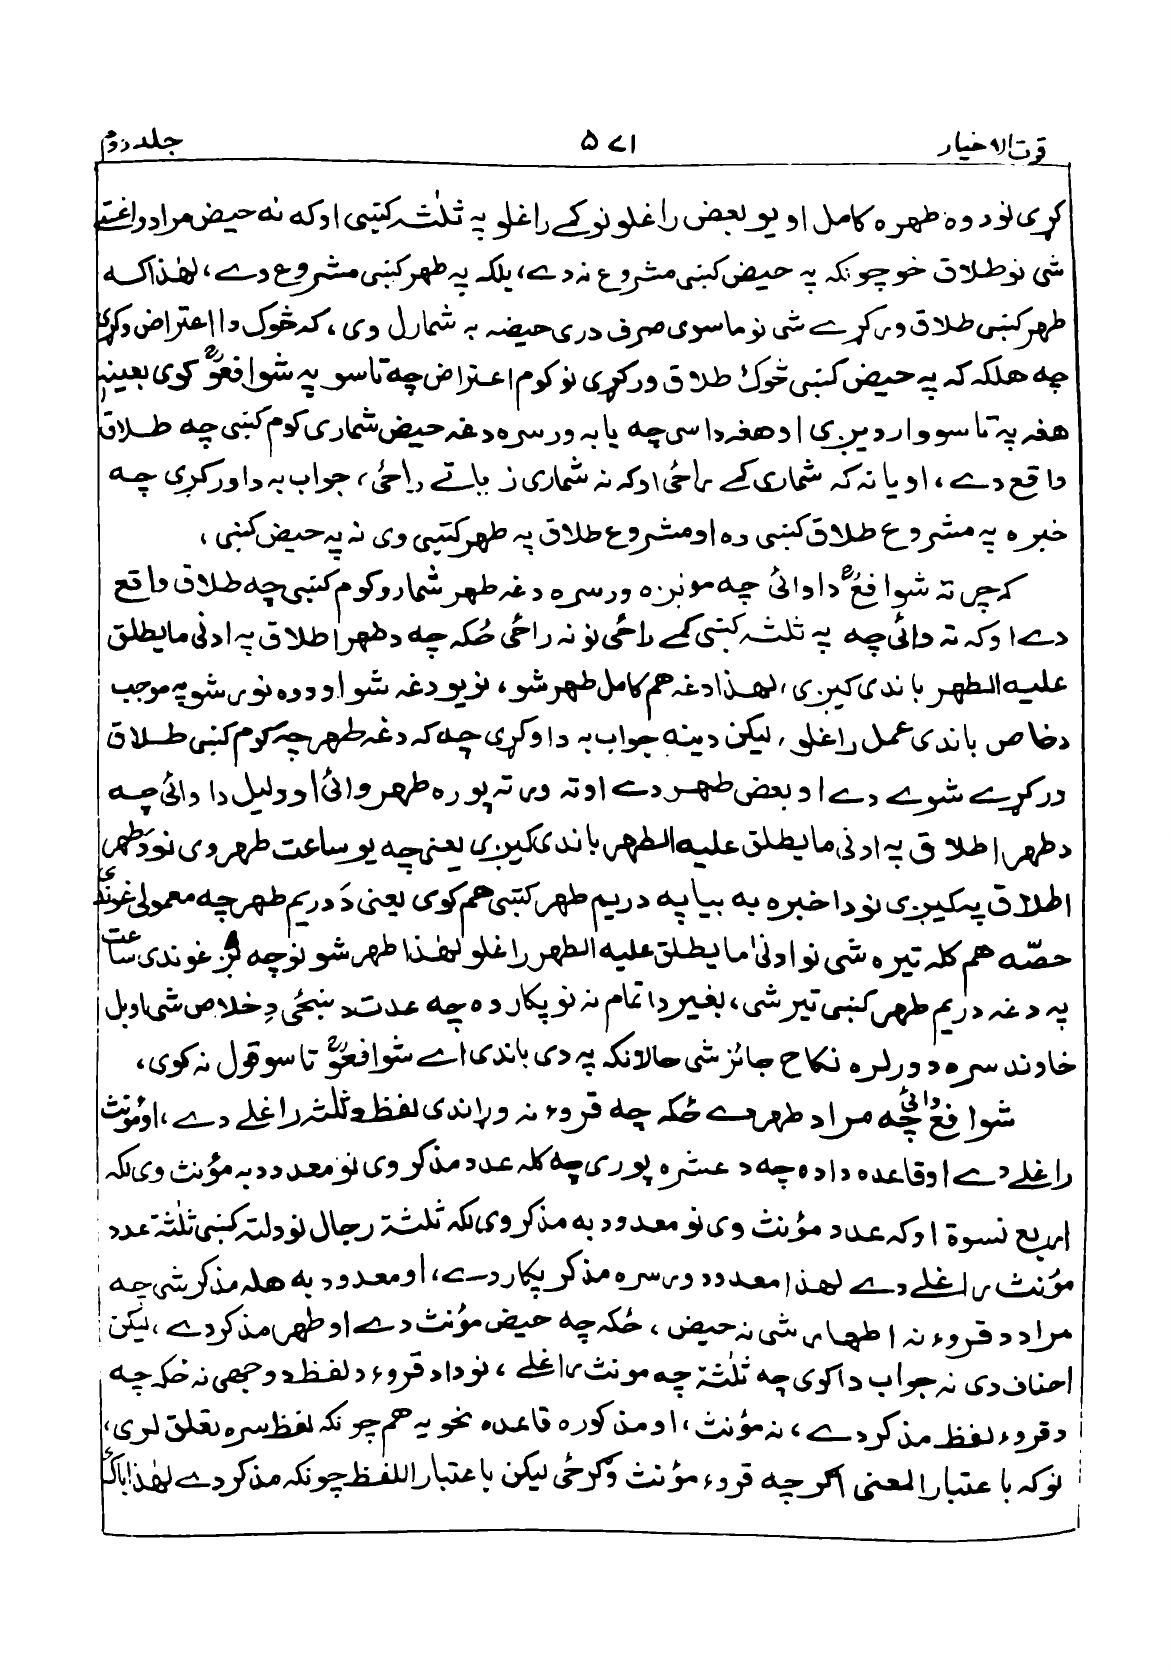 قرت الاخیار ۵۷۱ جلد دوم
کړی نو دوه طهره کامل او یو بعض راغلو نو کمے راغلو په ثلٰثه کښی او که نه حیض مراد واغستے
شی نو طلاق خو چونکه په حیض کښی مشروع نه دے، بلکه په طهر کښی مشروع دے، لهٰذا که
طهر کښی طلاق ورکړے شی نو ماسوی صرف دری حیضه به شمارل وی، که څوک دا اعتراض وکړی
چه هلکه که په حیض کښی څوک طلاق ورکړی نو کوم اعتراض چه تاسو په شوافعوؒ کوی بعینہٖ
هغه په تاسو واردیږی او هغه داسی چه یا به ورسره دغه حیض شماری کوم کښی چه طلاق
واقع دے، او یا نه که شماری کمے راځی او که نه شماری زیاتے راځی، جواب به دا ورکړی چه
خبره په مشروع طلاق کښی ده او مشروع طلاق په طهر کښی وی نه په حیض کښی،
کہ چرته شوافعؒ دا وائی چه مونږه ورسره دغه طهر شمارو کوم کښی چه طلاق واقع
دے او که ته وائی چه په ثلثه کښی کمے راځی نو نه راځی ځکه چه د طهر اطلاق په ادنٰی ما یطلق
علیه الطهر باندی کیږی، لهذا دغه هم کامل طهر شو، نو یو دغه شو او دوه نور شو په موجب
د خاص باندی عمل راغلو، لیکن دینه جواب به دا وکړی چه که دغه طهر چه کوم کښی طلاق
ورکړے شوے دے او بعض طهر دے او ته ورته پوره طهر وائی او دلیل دا وائی چه
د طهر اطلاق په ادنٰی ما یطلق علیه الطهر باندی کیږی یعنی چه یو ساعت طهر وی نو د طهر
اطلاق پکیږی نو دا خبره به بیا په دریم طهر کښی هم کوی یعنی دَ دریم طهر چه معمولی غوندی
حصّه هم کله تیره شی نو ادنٰی ما یطلق علیه الطهر راغلو لهٰذا طهر شو نو چه لږ غوندی ساعت
په دغه دریم طهر کښی تیر شی، بغیر د اتمام نه نو پکار ده چه عدت د ښځی دِ خلاص شی او بل
خاوند سره د ورله نکاح جائز شی حالانکه په دی باندی اے شوافعوؒ تاسو قول نه کوی،
شوافع وائی چه مراد طهر دے ځکه چه قروء نه وړاندی لفظ د ثلٰثه راغلے دے، او مؤنث
راغلے دے او قاعده دا ده چه د عشره پوری چه کله عدد مذکر وی نو معدود به مؤنث وی لکه
اربع نسوة او که عدد مؤنث وی نو معدود به مذکر وی لکه ثلثة رجال نو دلته کښی ثلٰثة عدد
مؤنث راغلے دے لهذا معدود ورسره مذکر پکار دے، او معدود به هله مذکر شی چه
مراد د قروء نه اطهار شی نه حیض، ځکه چه حیض مؤنث دے او طهر مذکر دے، لیکن
احناف دی نه جواب دا کوی چه ثلٰثة چه مونث راغلے، نو دا د قروء د لفظ د وجهی نه ځکه چه
د قروء لفظ مذکر دے، نه مؤنث، او مذکوره قاعده نحویه هم چونکه لفظ سره تعلق لری،
نو که باعتبار المعنی اگرچه قروء مؤنث وګرځی لیکن باعتبار اللفظ چونکه مذکر دے لهٰذا